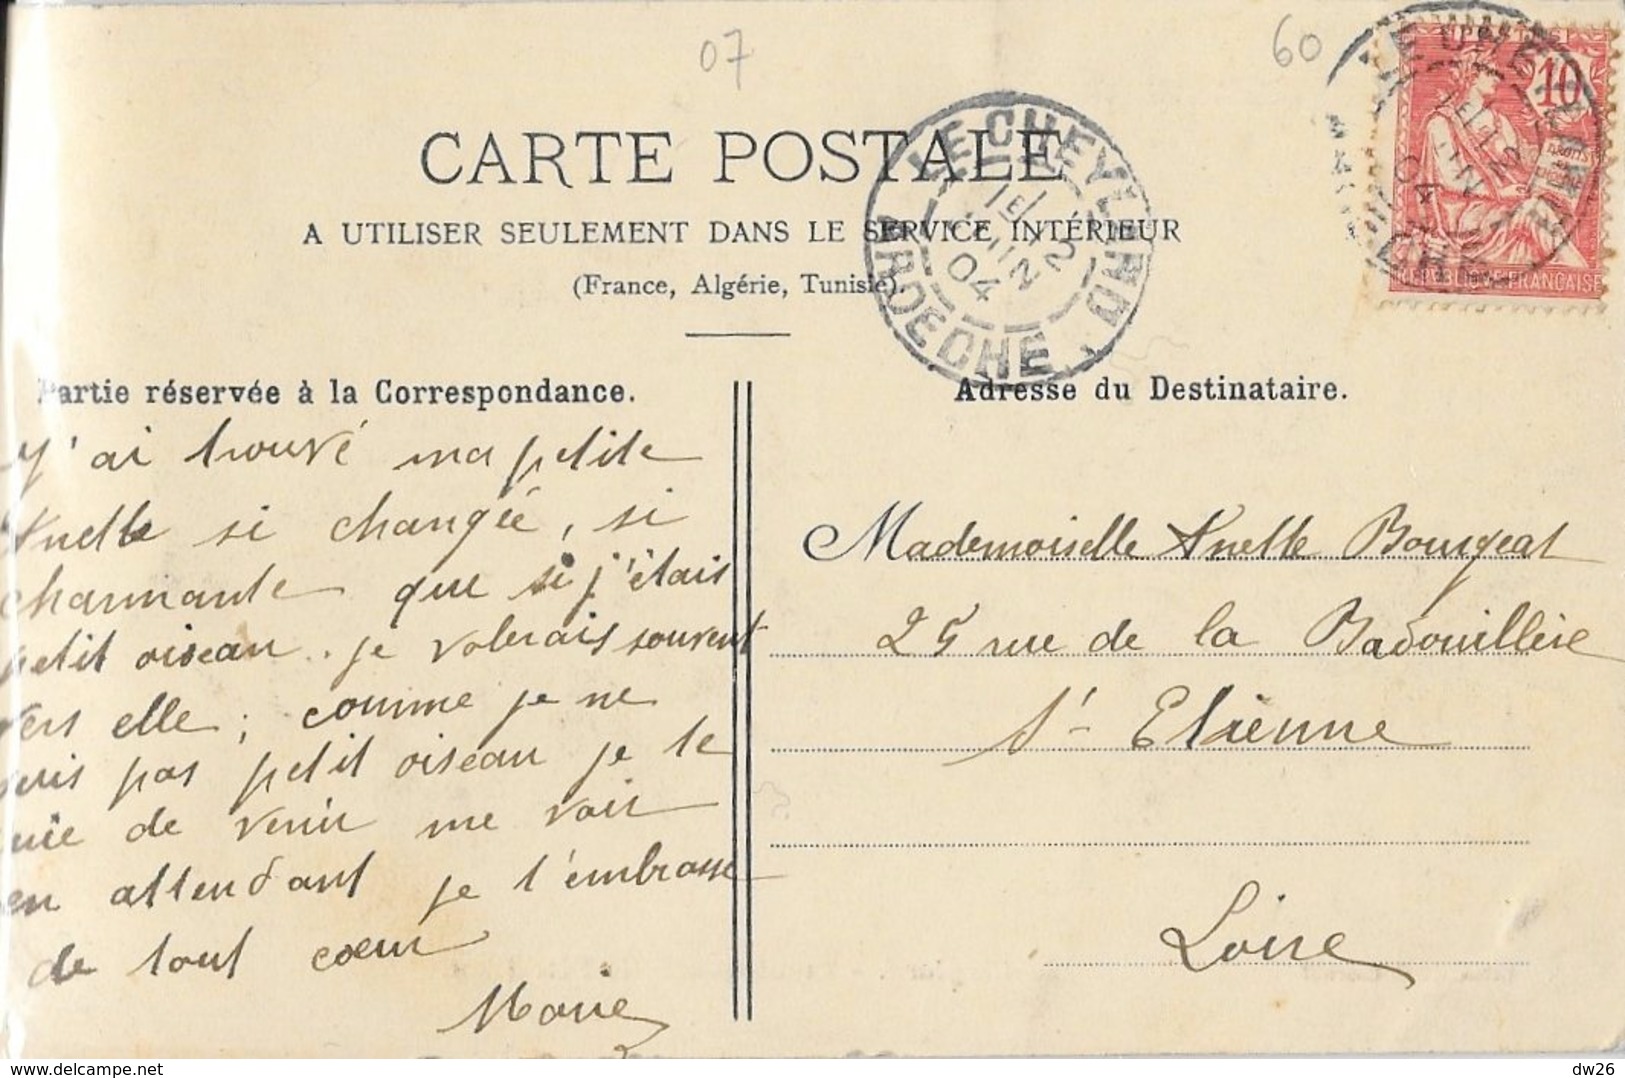 07
60
CARTE POSTALE
A UTILISER SEULEMENT DANS LE SERVICE INTÉRIEUR
(France, Algérie, Tunisie).
LE CHEYLARD
1E
JUIN 2
04
ARDECHE
10
REPUBLIQUE FRANÇAISE
Partie réservée à la Correspondance.
Adresse du Destinataire.
J'ai trouvé ma petite
Annette si changée, si
charmante que si j'étais
petit oiseau. je volerais souvent
vers elle; comme je ne
suis pas petit oiseau je te
prie de venir me voir
en attendant je t'embrasse
de tout cœur
Marie
Mademoiselle Annette Bourgeat
25 rue de la Badouillère
St Etienne
Loire
delcampe.net
dw26